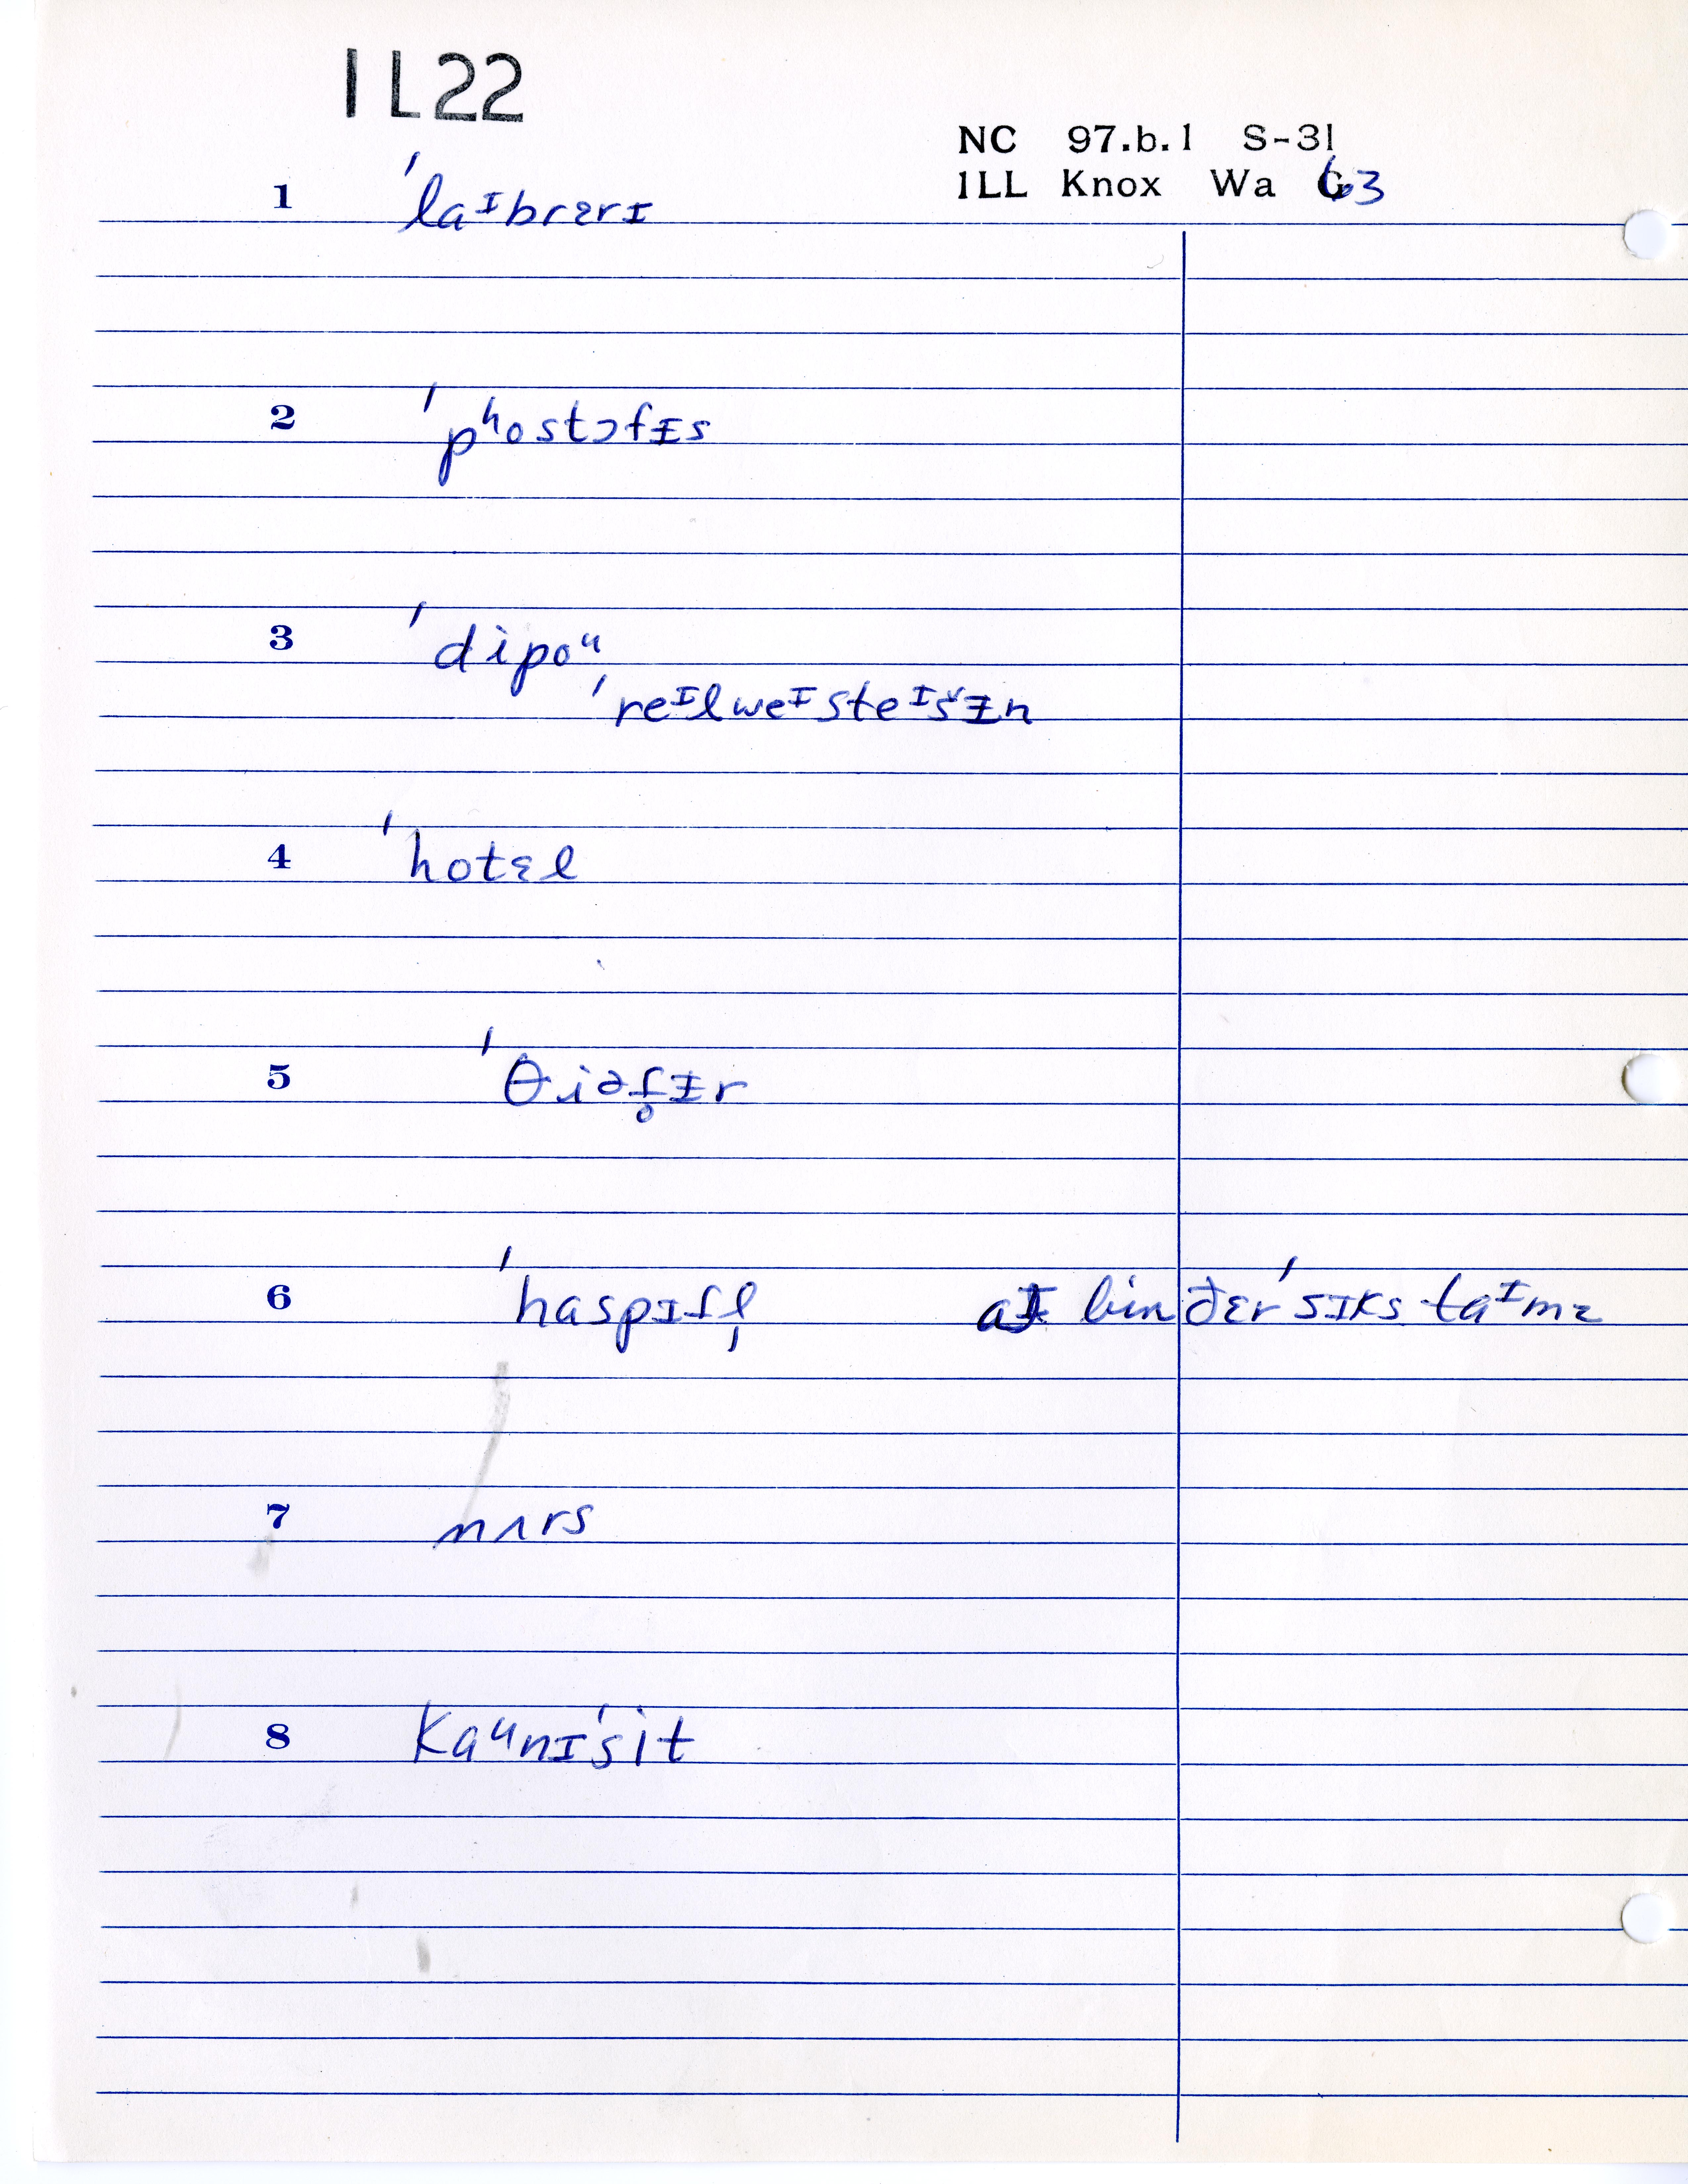 1L22
NC 97.b.1 S-31
1LL Knox Wa 63
1 ˈlaᴵbrɛrɪ
2 ˈpʰostɔfɪ̵s
3 ˈdipoᵘ
ˈreᴵlweᴵsteᴵšɪ̵n
4 ˈhotɛl
5 ˈθiəɾ̥ɪ̵r
6 ˈhaspɪɾl̩ aɪ bin ðɛr ˈsɪks taᴵmz
7 nʌrs
8 kaᵘnɪˈsit